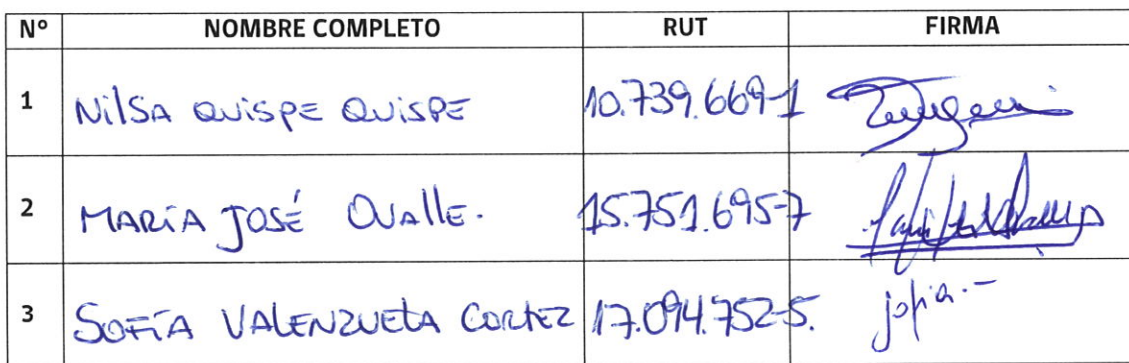 N° NOMBRE COMPLETO RUT FIRMA
1 NilSA QUISPE QUISPE 10.739.669-1
2 MARÍA JOSÉ OVAllE. 15.751.695-7
3 SOFÍA VALENZUElA CORtEZ 17.094.752-5. sofía.-